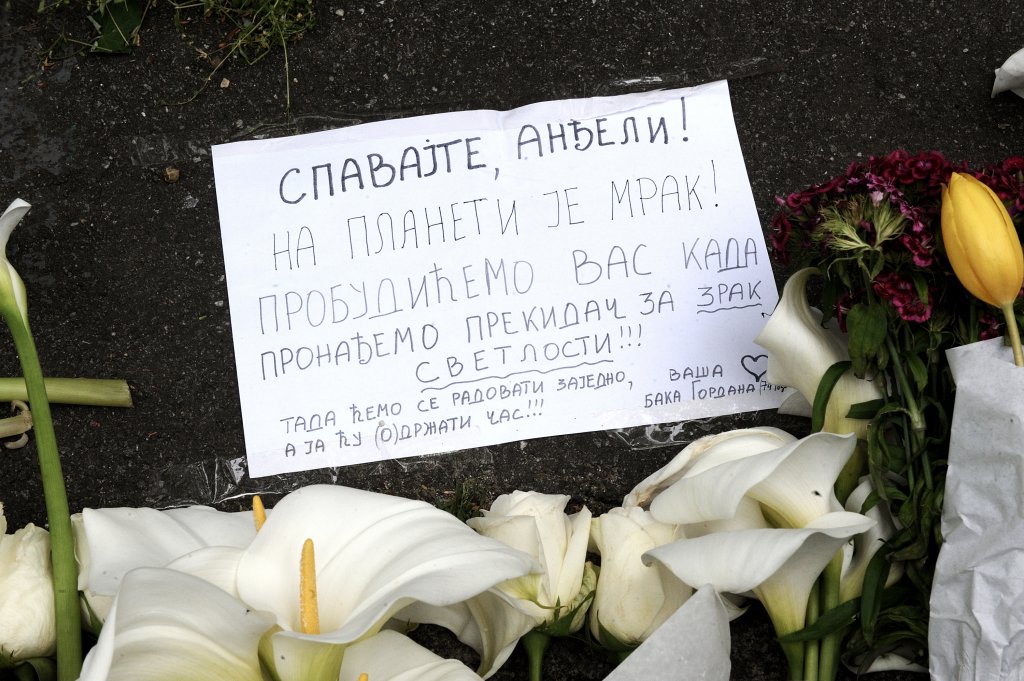 СПАВАЈТЕ, АНЂЕЛИ!
НА ПЛАНЕТИ ЈЕ МРАК!
ПРОБУДИЋЕМО ВАС КАДА
ПРОНАЂЕМО ПРЕКИДАЧ ЗА ЗРАК
СВЕТЛОСТИ!!!
ТАДА ЋЕМО СЕ РАДОВАТИ ЗАЈЕДНО,
А ЈА ЋУ (О)ДРЖАТИ ЧАС!!!
ВАША
БАКА ГОРДАНА, 74 год